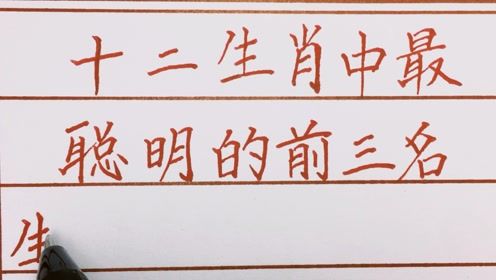 十二生肖中最
聪明的前三名
生